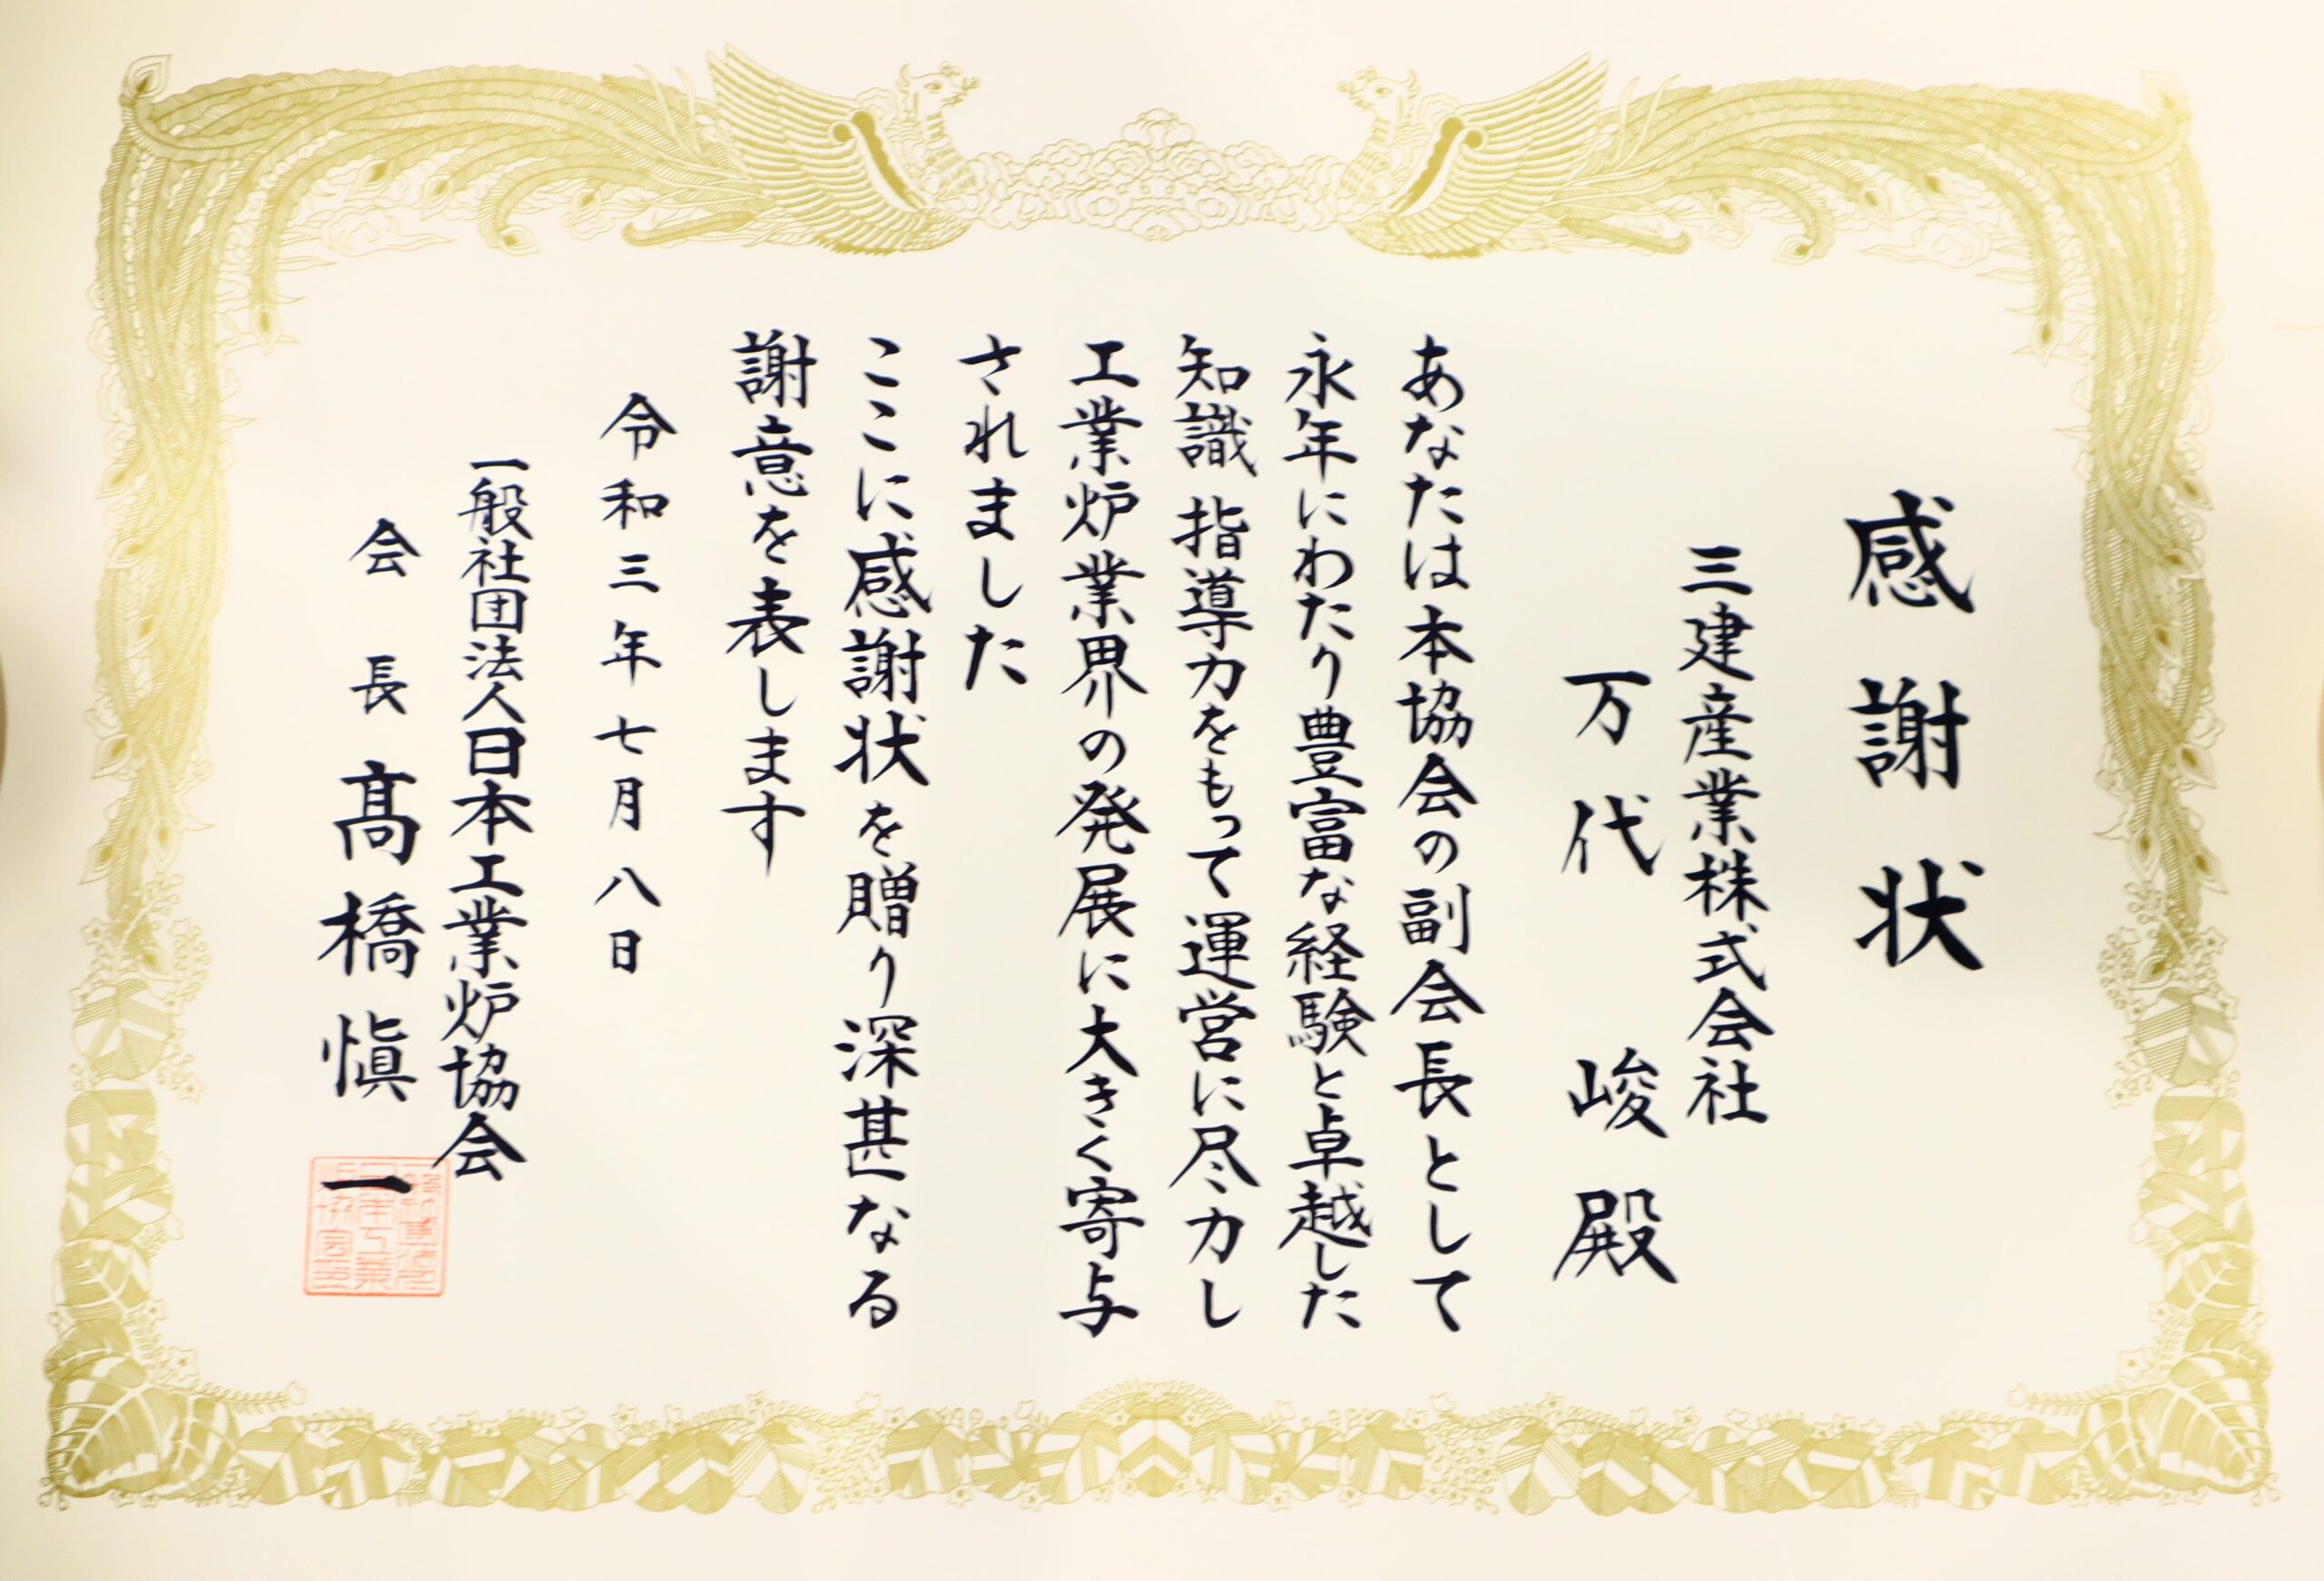 感謝状
三建産業株式会社
万代 峻殿
あなたは本協会の副会長として
永年にわたり豊富な経験と卓越した
知識 指導力をもって運営に尽力し
工業炉業界の発展に大きく寄与
されました
ここに感謝状を贈り深甚なる
謝意を表します
令和三年七月八日
一般社団法人日本工業炉協会
会長 髙橋愼一